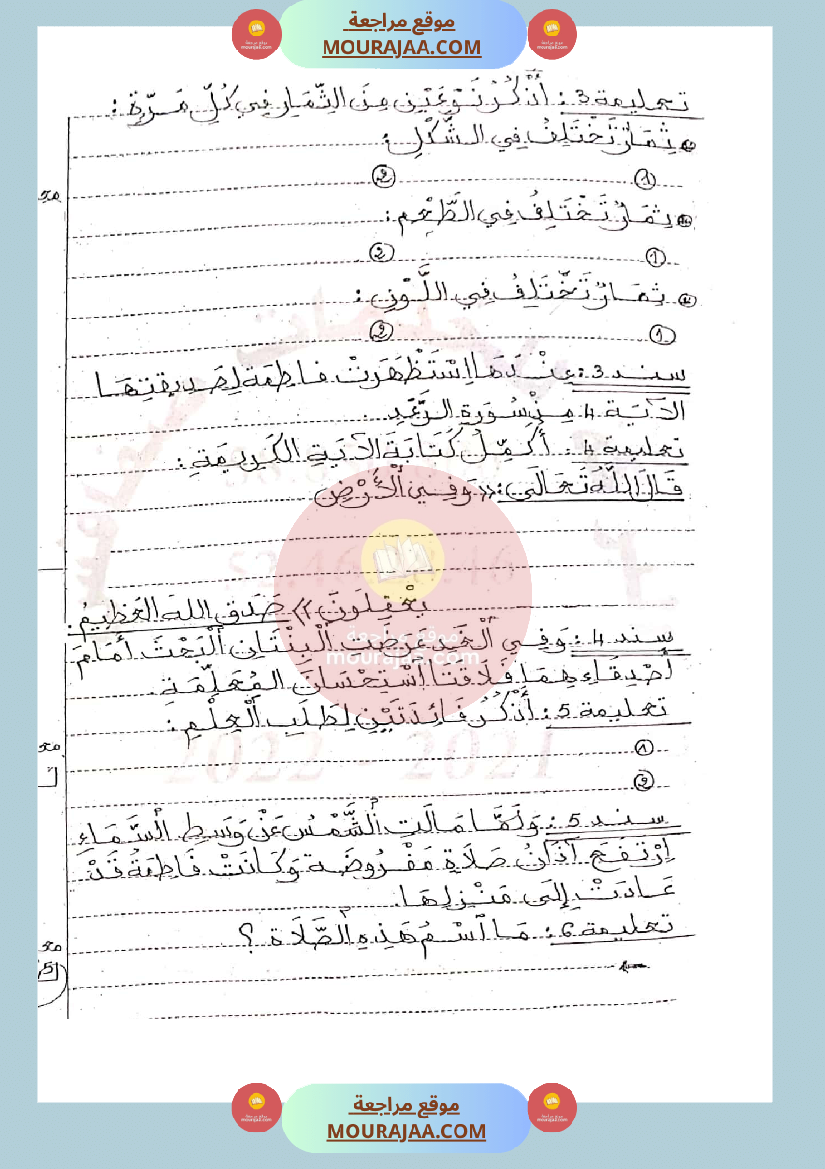 موقع مراجعة
MOURAJAA.COM
تعليمة 3: أَذْكُرُ نَوْعَيْنِ مِنَ الثِّمَارِ فِي كُلِّ مَرَّةٍ:
ثِمَارٌ تَخْتَلِفُ فِي الشَّكْلِ:
1 2
ثِمَارٌ تَخْتَلِفُ فِي الطَّعْمِ:
1 2
ثِمَارٌ تَخْتَلِفُ فِي اللَّوْنِ:
1 2
سند 3: عِنْدَهَا اِسْتَظْهَرَتْ فَاطِمَة لِصَدِيقَتِهَا
الآيَة 4 مِنْ سُورَةِ الرَّعْدِ.
تعليمة 4: أُكْمِلُ كِتَابَةَ الآيَةِ الكَرِيمَةِ:
قَالَ اللَّهُ تَعَالَى: «وَفِي الْأَرْضِ
يَعْقِلُونَ» صَدَقَ اللهُ العَظِيمُ.
سند 4: وَفِي الْغَدِ عَرَضَتِ الْبِنْتَانِ الْبَحْثَ أَمَامَ
أَصْدِقَاءِهِمَا فَلَاقَتَا اسْتِحْسَانَ المُعَلِّمَةِ.
تعليمة 5: أَذْكُرُ فَائِدَتَيْنِ لِطَلَبِ الْعِلْمِ:
1
2
سند 5: وَلَمَّا مَالَتِ الشَّمْسُ عَنْ وَسَطِ السَّمَاءِ
اِرْتَفَعَ آذَانُ صَلَاةٍ مَفْرُوضَة وَكَانَتْ فَاطِمَةُ قَدْ
عَادَتْ إِلَى مَنْزِلِهَا.
تعليمة 6: مَا اسْمُ هَذِهِ الصَّلَاة ؟
موقع مراجعة
mourajaa.com
2022 2021
موقع مراجعة
MOURAJAA.COM